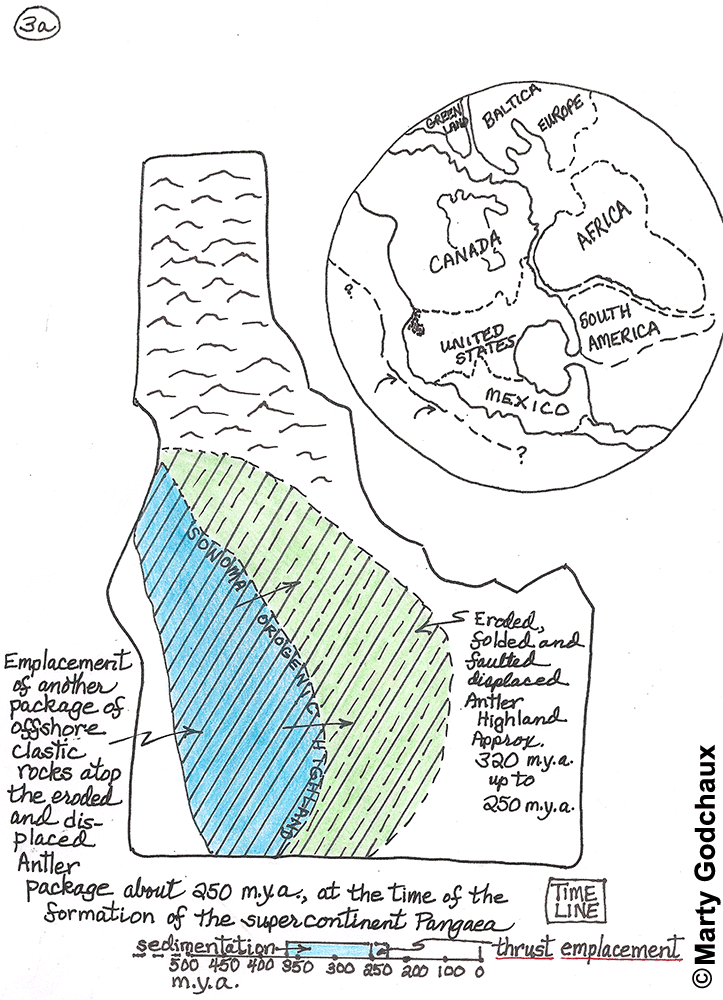 3a
GREEN
LAND
BALTICA
EUROPE
AFRICA
CANADA
?
UNITED
STATES
SOUTH
AMERICA
MEXICO
?
SONOMA OROGENIC HIGHLAND
Eroded,
folded and
faulted
displaced
Antler
Highland
Approx.
320 m.y.a.
up to
250 m.y.a.
Emplacement
of another
package of
offshore
clastic
rocks atop
the eroded
and dis-
placed
Antler
package about 250 m.y.a., at the time of the
formation of the supercontinent Pangaea
TIME
LINE
sedimentation
thrust emplacement
500 450 400 350 300 250 200 100 0
m.y.a.
© Marty Godchaux